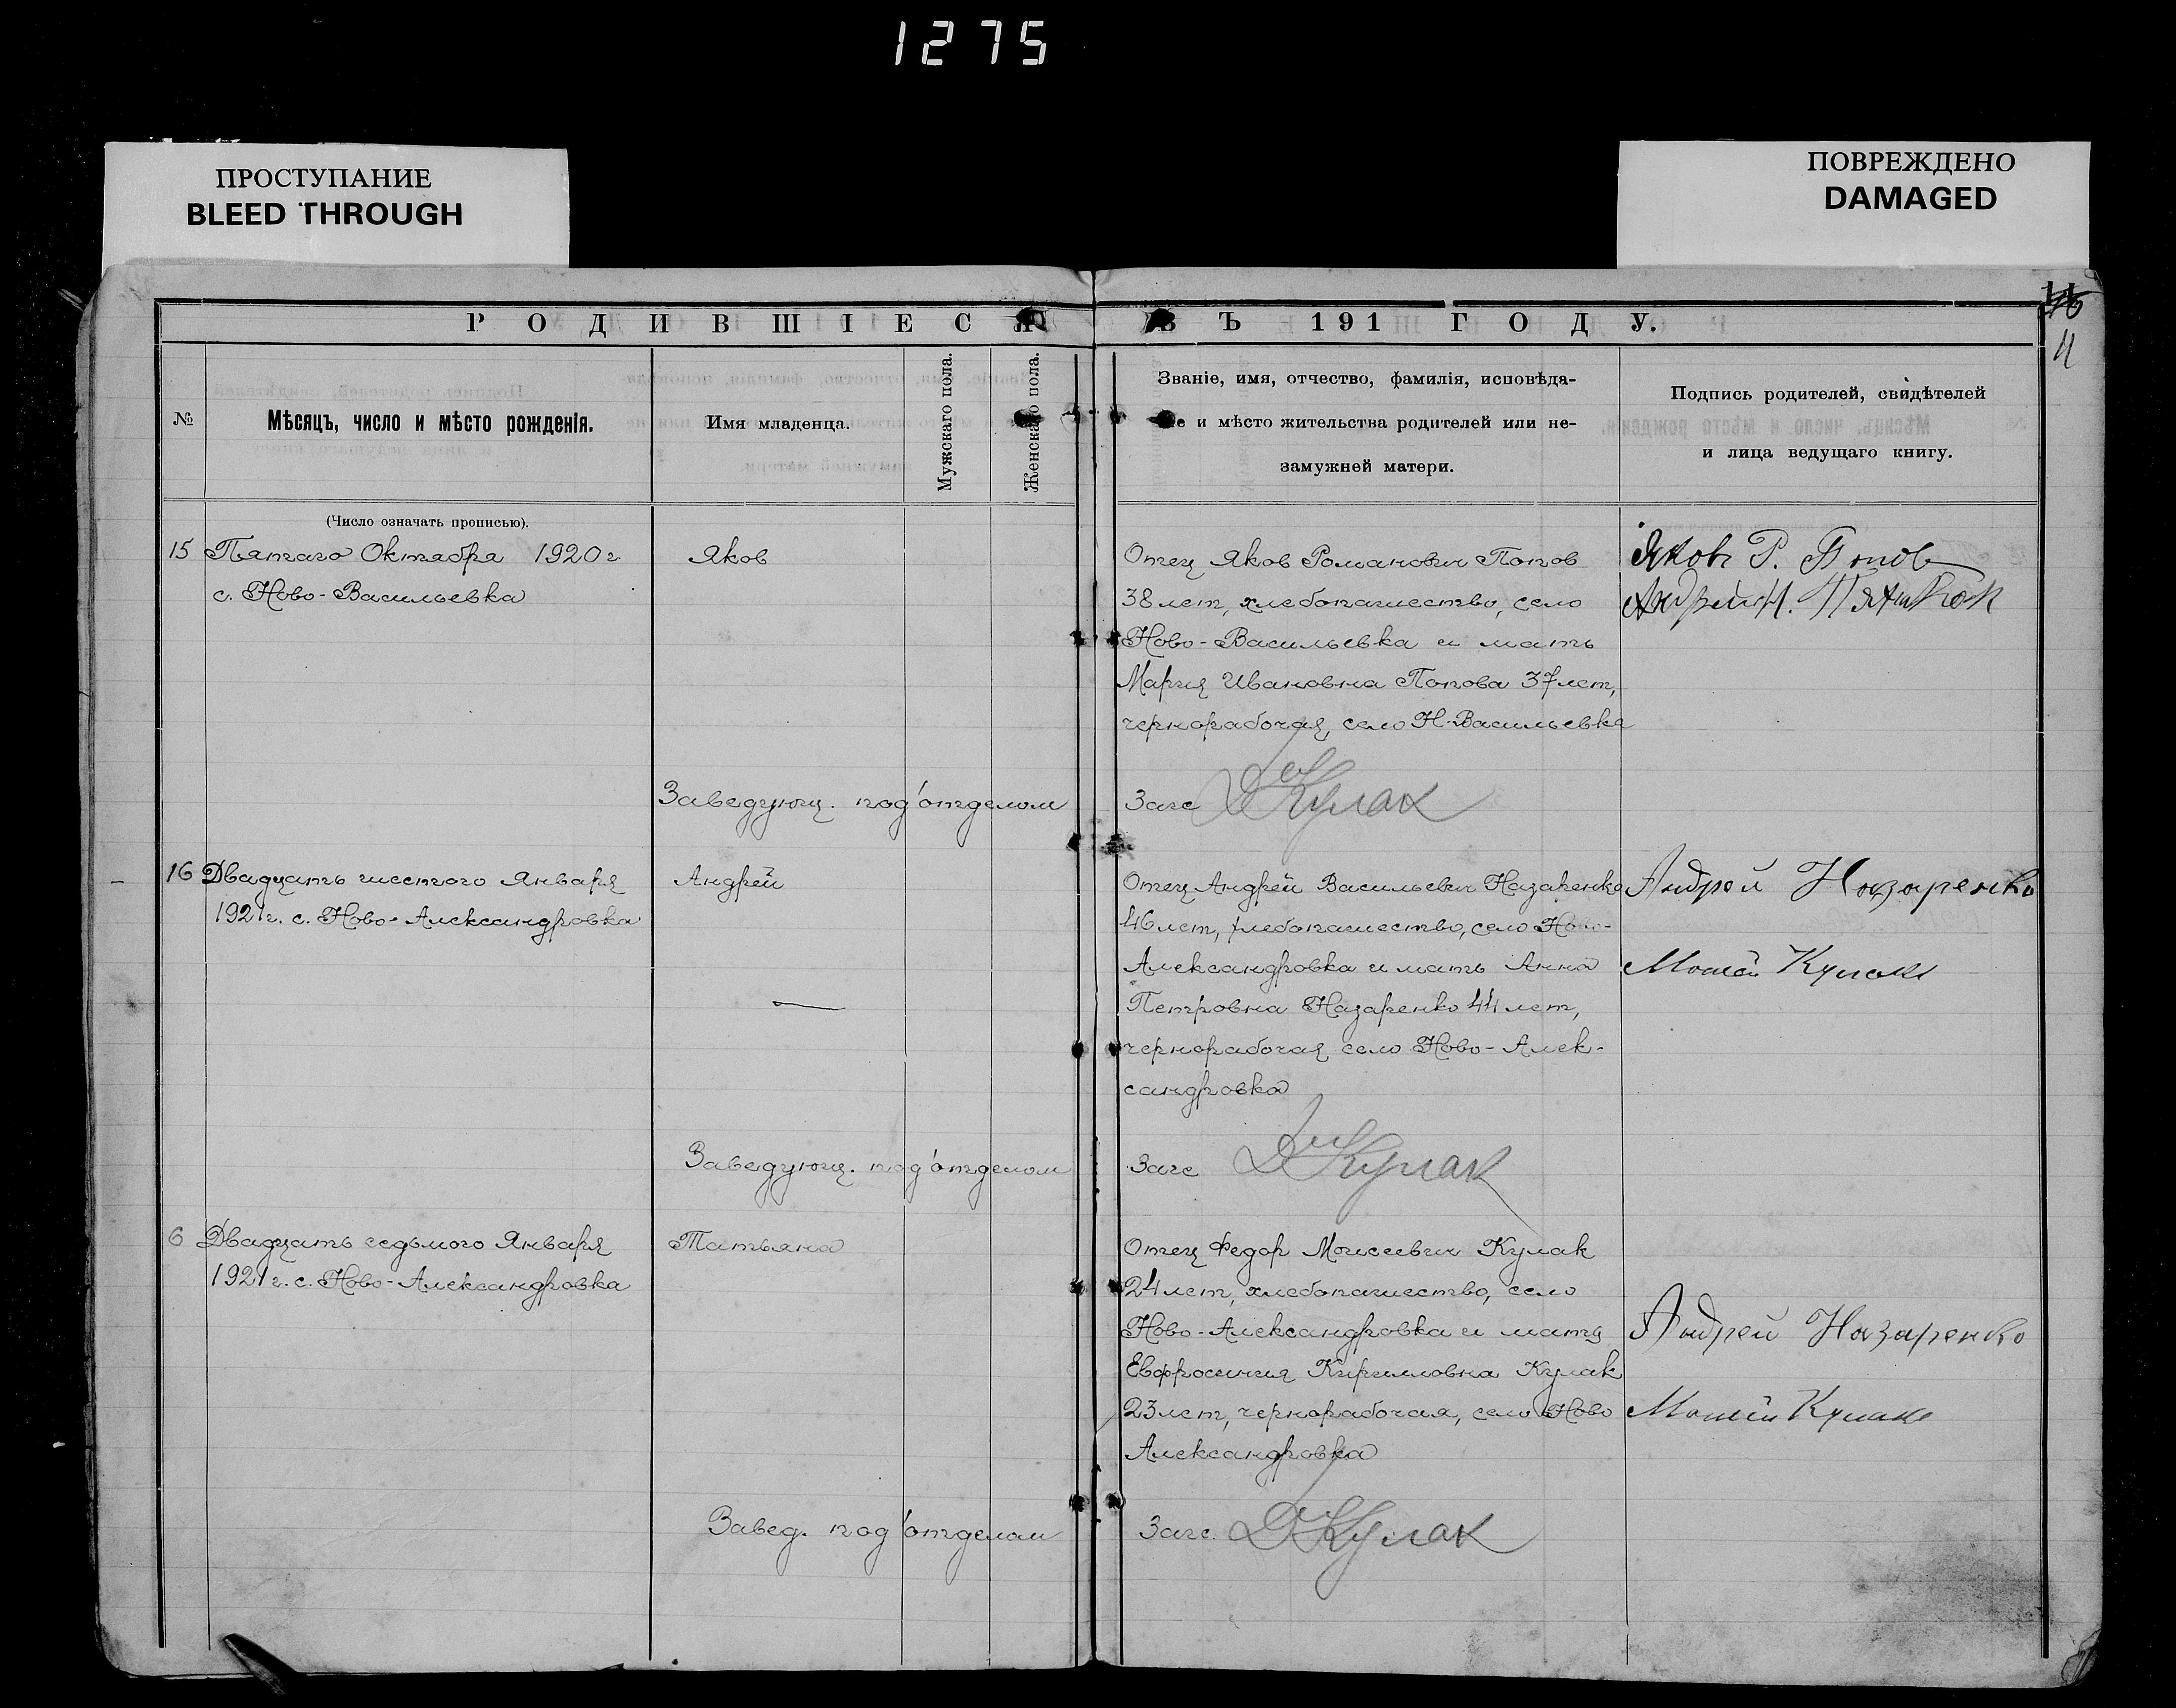 1275
ПРОСТУПАНИЕ
BLEED THROUGH
ПОВРЕЖДЕНО
DAMAGED
РОДИВШІЕСЯ
ВЪ 191 ГОДУ.
11
№
Мѣсяцъ, число и мѣсто рожденія.
Имя младенца.
Мужскаго пола.
Женскаго пола.
Званіе, имя, отчество, фамилія, исповѣда-
и мѣсто жительства родителей или не-
замужней матери.
Подпись родителей, свидѣтелей
и лица ведущаго книгу.
(Число означать прописью).
15 Пятаго Октября 1920 г
с. Ново-Васильевка
Яков
Отец Яков Романович Попов
38 лет, хлебопашество, село
Ново-Васильевка и мать
Мария Ивановна Попова 37 лет,
чернорабочая, село Н-Васильевка
Яковъ Р. Попов
Андрей
Заведующ. под'отделом
Загс ДКулак
16 Двадцать шестого Января
1921 г. с. Ново-Александровка
Андрей
Отец Андрей Васильевич Назаренко
46 лет, хлебопашество, село Ново-
Александровка и мать Анна
Петровна Назаренко 44 лет,
чернорабочая село Ново-Алек-
сандровка
Андрей Назаренко
Моисей Кулак
Заведующ. под'отделом
Загс ДКулак
6 Двадцать седьмого Января
1921 г. с. Ново-Александровка
Татьяна
Отец Федор Моисеевич Кулак
24 лет, хлебопашество, село
Ново-Александровка и мать
Евфросиния Кирилловна Кулак
23 лет, чернорабочая, село Ново
Александровка
Андрей Назаренко
Моисей Кулак
Завед. под'отделом
Загс. ДКулак